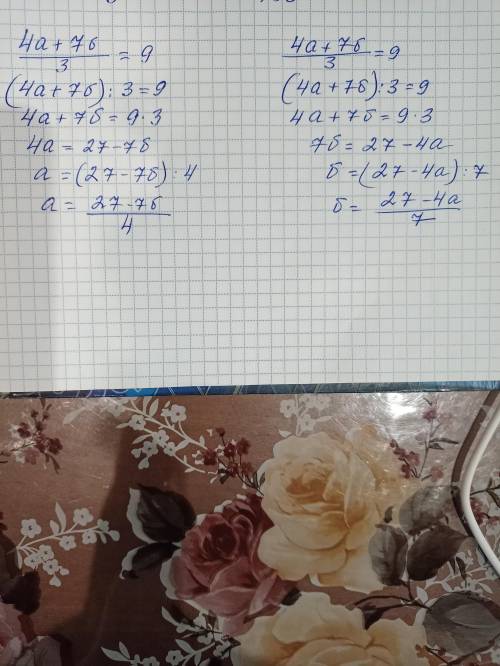 4а + 7б / 3 = 9
(4а + 7б) : 3 = 9
4а + 7б = 9 · 3
4а = 27 - 7б
а = (27 - 7б) : 4
а = 27 - 7б / 4
4а + 7б / 3 = 9
(4а + 7б) : 3 = 9
4а + 7б = 9 · 3
7б = 27 - 4а
б = (27 - 4а) : 7
б = 27 - 4а / 7